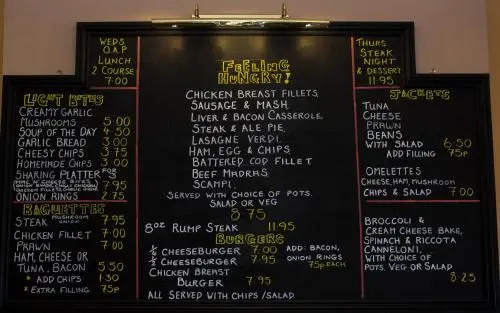 WEDS
O.A.P
LUNCH
2 COURSE
7.00
LIGHT BITES
CREAMY GARLIC
MUSHROOMS 5.00
SOUP OF THE DAY 4.50
GARLIC BREAD 3.00
CHEESY CHIPS 3.75
HOMEMADE CHIPS 3.00
SHARING PLATTER FOR
7.95
ONION RINGS 2.75
BAGUETTES
STEAK MUSHROOM ONION 7.95
CHICKEN FILLET 7.00
PRAWN 7.00
HAM, CHEESE OR
TUNA, BACON 5.50
* ADD CHIPS 1.50
* EXTRA FILLING 75p
FEELING
HUNGRY!
CHICKEN BREAST FILLETS,
SAUSAGE & MASH,
LIVER & BACON CASSEROLE,
STEAK & ALE PIE,
LASAGNE VERDI,
HAM, EGG & CHIPS,
BATTERED COD FILLET
BEEF MADRAS,
SCAMPI,
SERVED WITH CHOICE OF POTS.
SALAD OR VEG
8.75
8oz RUMP STEAK 11.95
BURGERS
1/4 CHEESEBURGER 7.00 ADD: BACON,
1/2 CHEESEBURGER 7.95 ONION RINGS
75p EACH
CHICKEN BREAST
BURGER 7.95
ALL SERVED WITH CHIPS/SALAD
THURS
STEAK
NIGHT
& DESSERT
11.95
JACKETS
TUNA
CHEESE
PRAWN
BEANS
WITH SALAD 6.50
ADD FILLING 75p
OMELETTES
CHEESE, HAM, MUSHROOM
CHIPS & SALAD 7.00
BROCCOLI &
CREAM CHEESE BAKE,
SPINACH & RICCOTA
CANNELONI,
WITH CHOICE OF
POTS. VEG OR SALAD
8.25